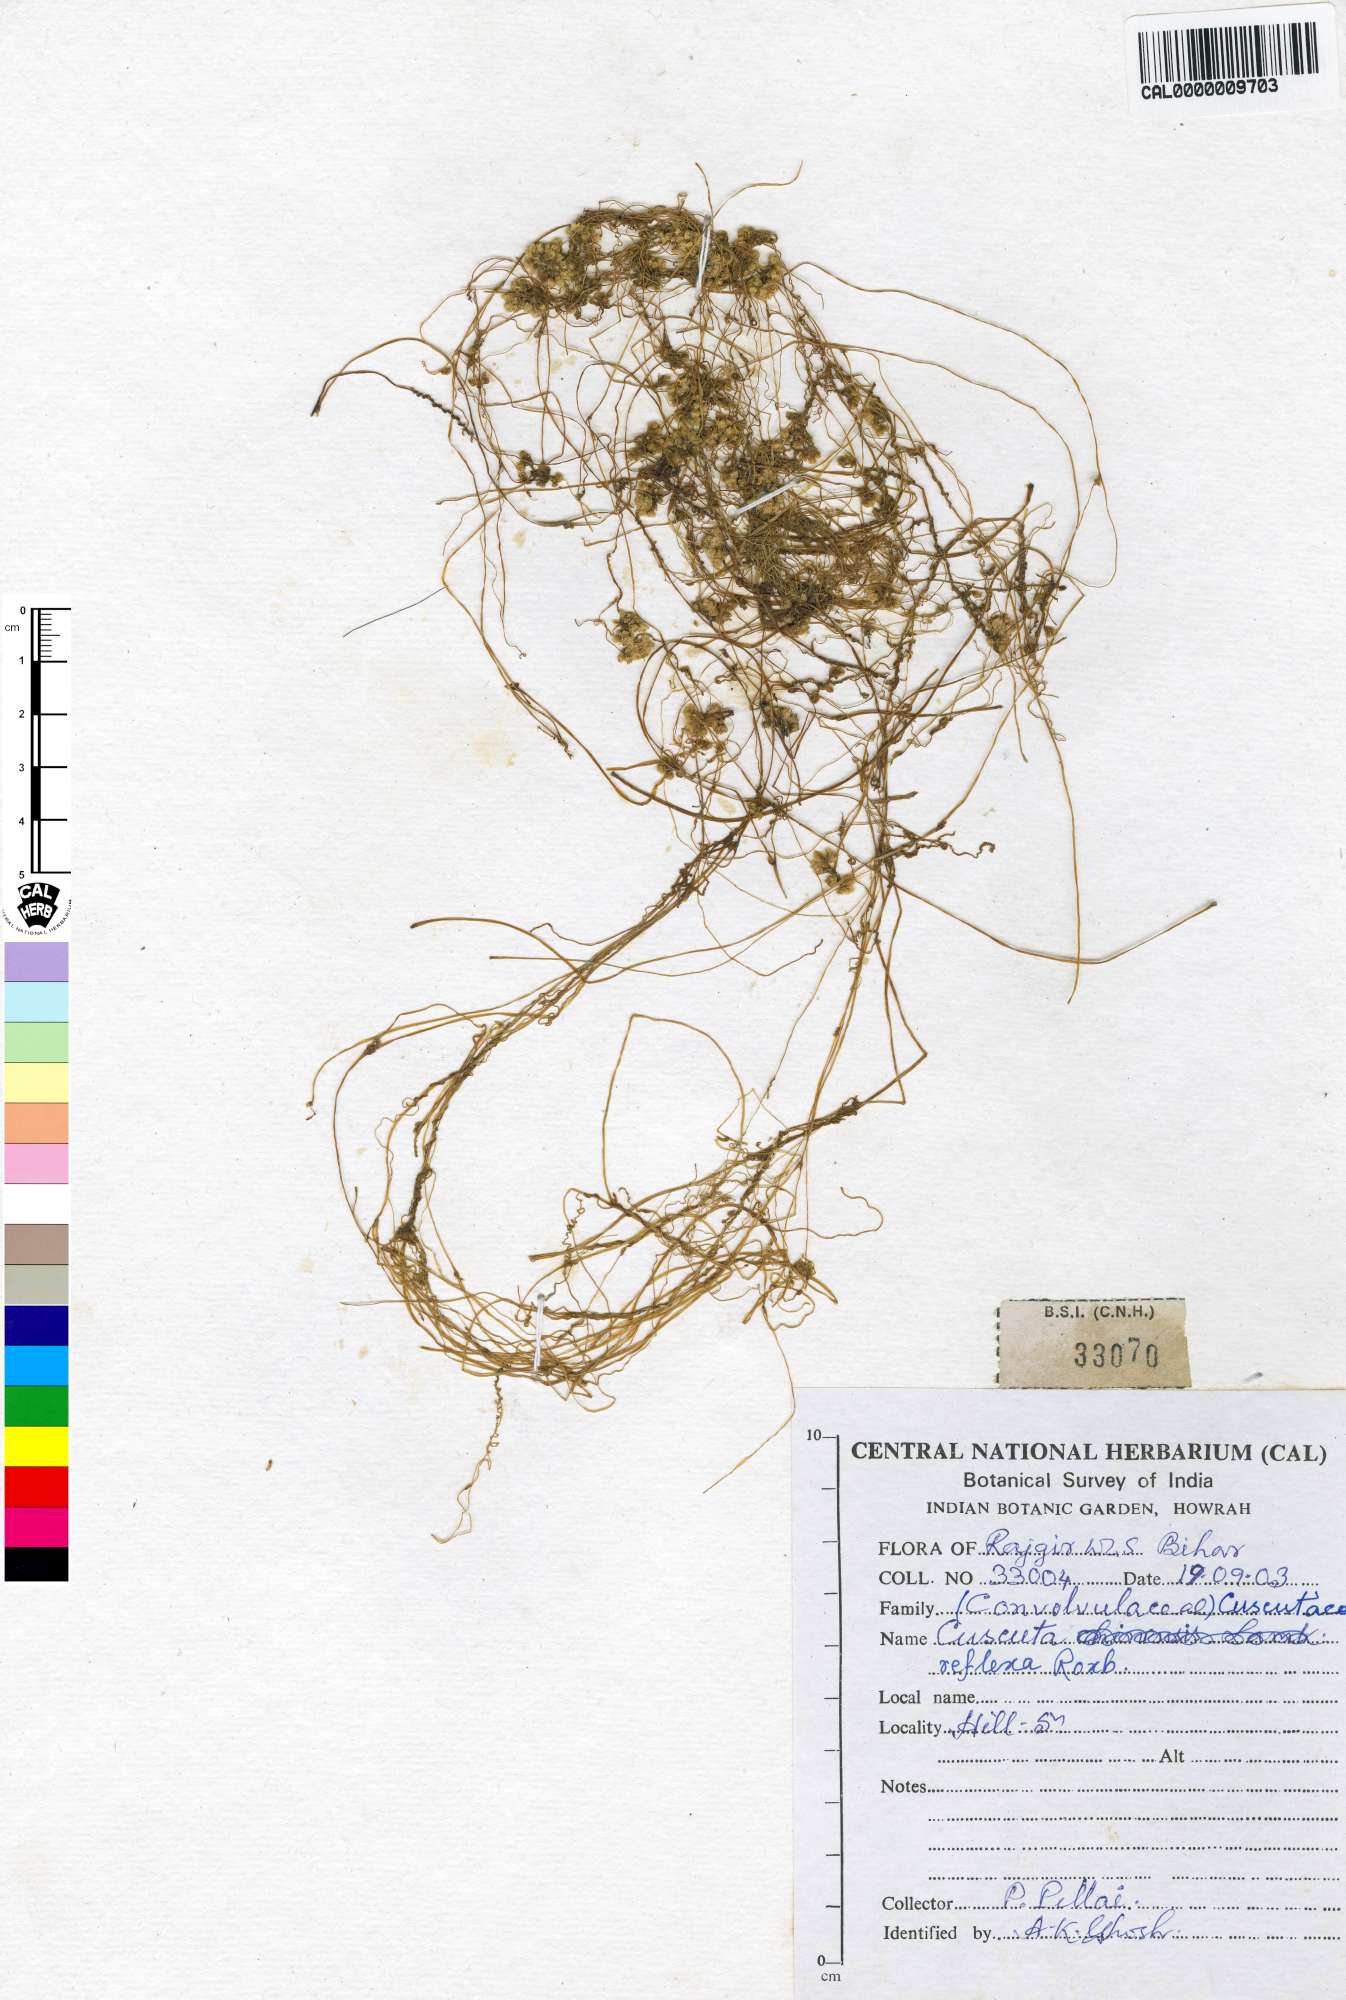 CAL0000009703
0
cm
1
2
3
4
5
CAL
HERB
B.S.I. (C.N.H.)
33070
10
CENTRAL NATIONAL HERBARIUM (CAL)
Botanical Survey of India
INDIAN BOTANIC GARDEN, HOWRAH
FLORA OF Rajgir WLS Bihar
COLL. NO 33004 Date 19.09.03
Family (Convolvulaceae) Cuscutace
Name Cuscuta chinensis Lamk.
reflexa Roxb.
Local name
Locality Hill-5
Alt
Notes
Collector P. Pillai.
Identified by A.K. Ghosh.
0
cm